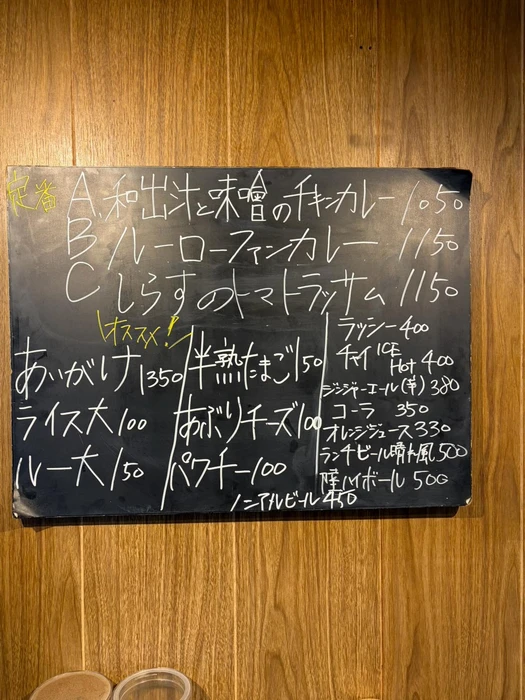 定番 A. 和出汁と味噌のチキンカレー 1050
B ルーローファンカレー 1150
C しらすのトマトラッサム 1150
オススメ!
あいがけ 1350
ライス大 100
ルー大 150
半熟たまご 150
あぶりチーズ 100
パクチー 100
ラッシー 400
チャイ ICE Hot 400
ジンジャーエール(辛) 380
コーラ 350
オレンジジュース 330
ランチビール晴れ風 500
陸ハイボール 500
ノンアルビール 450